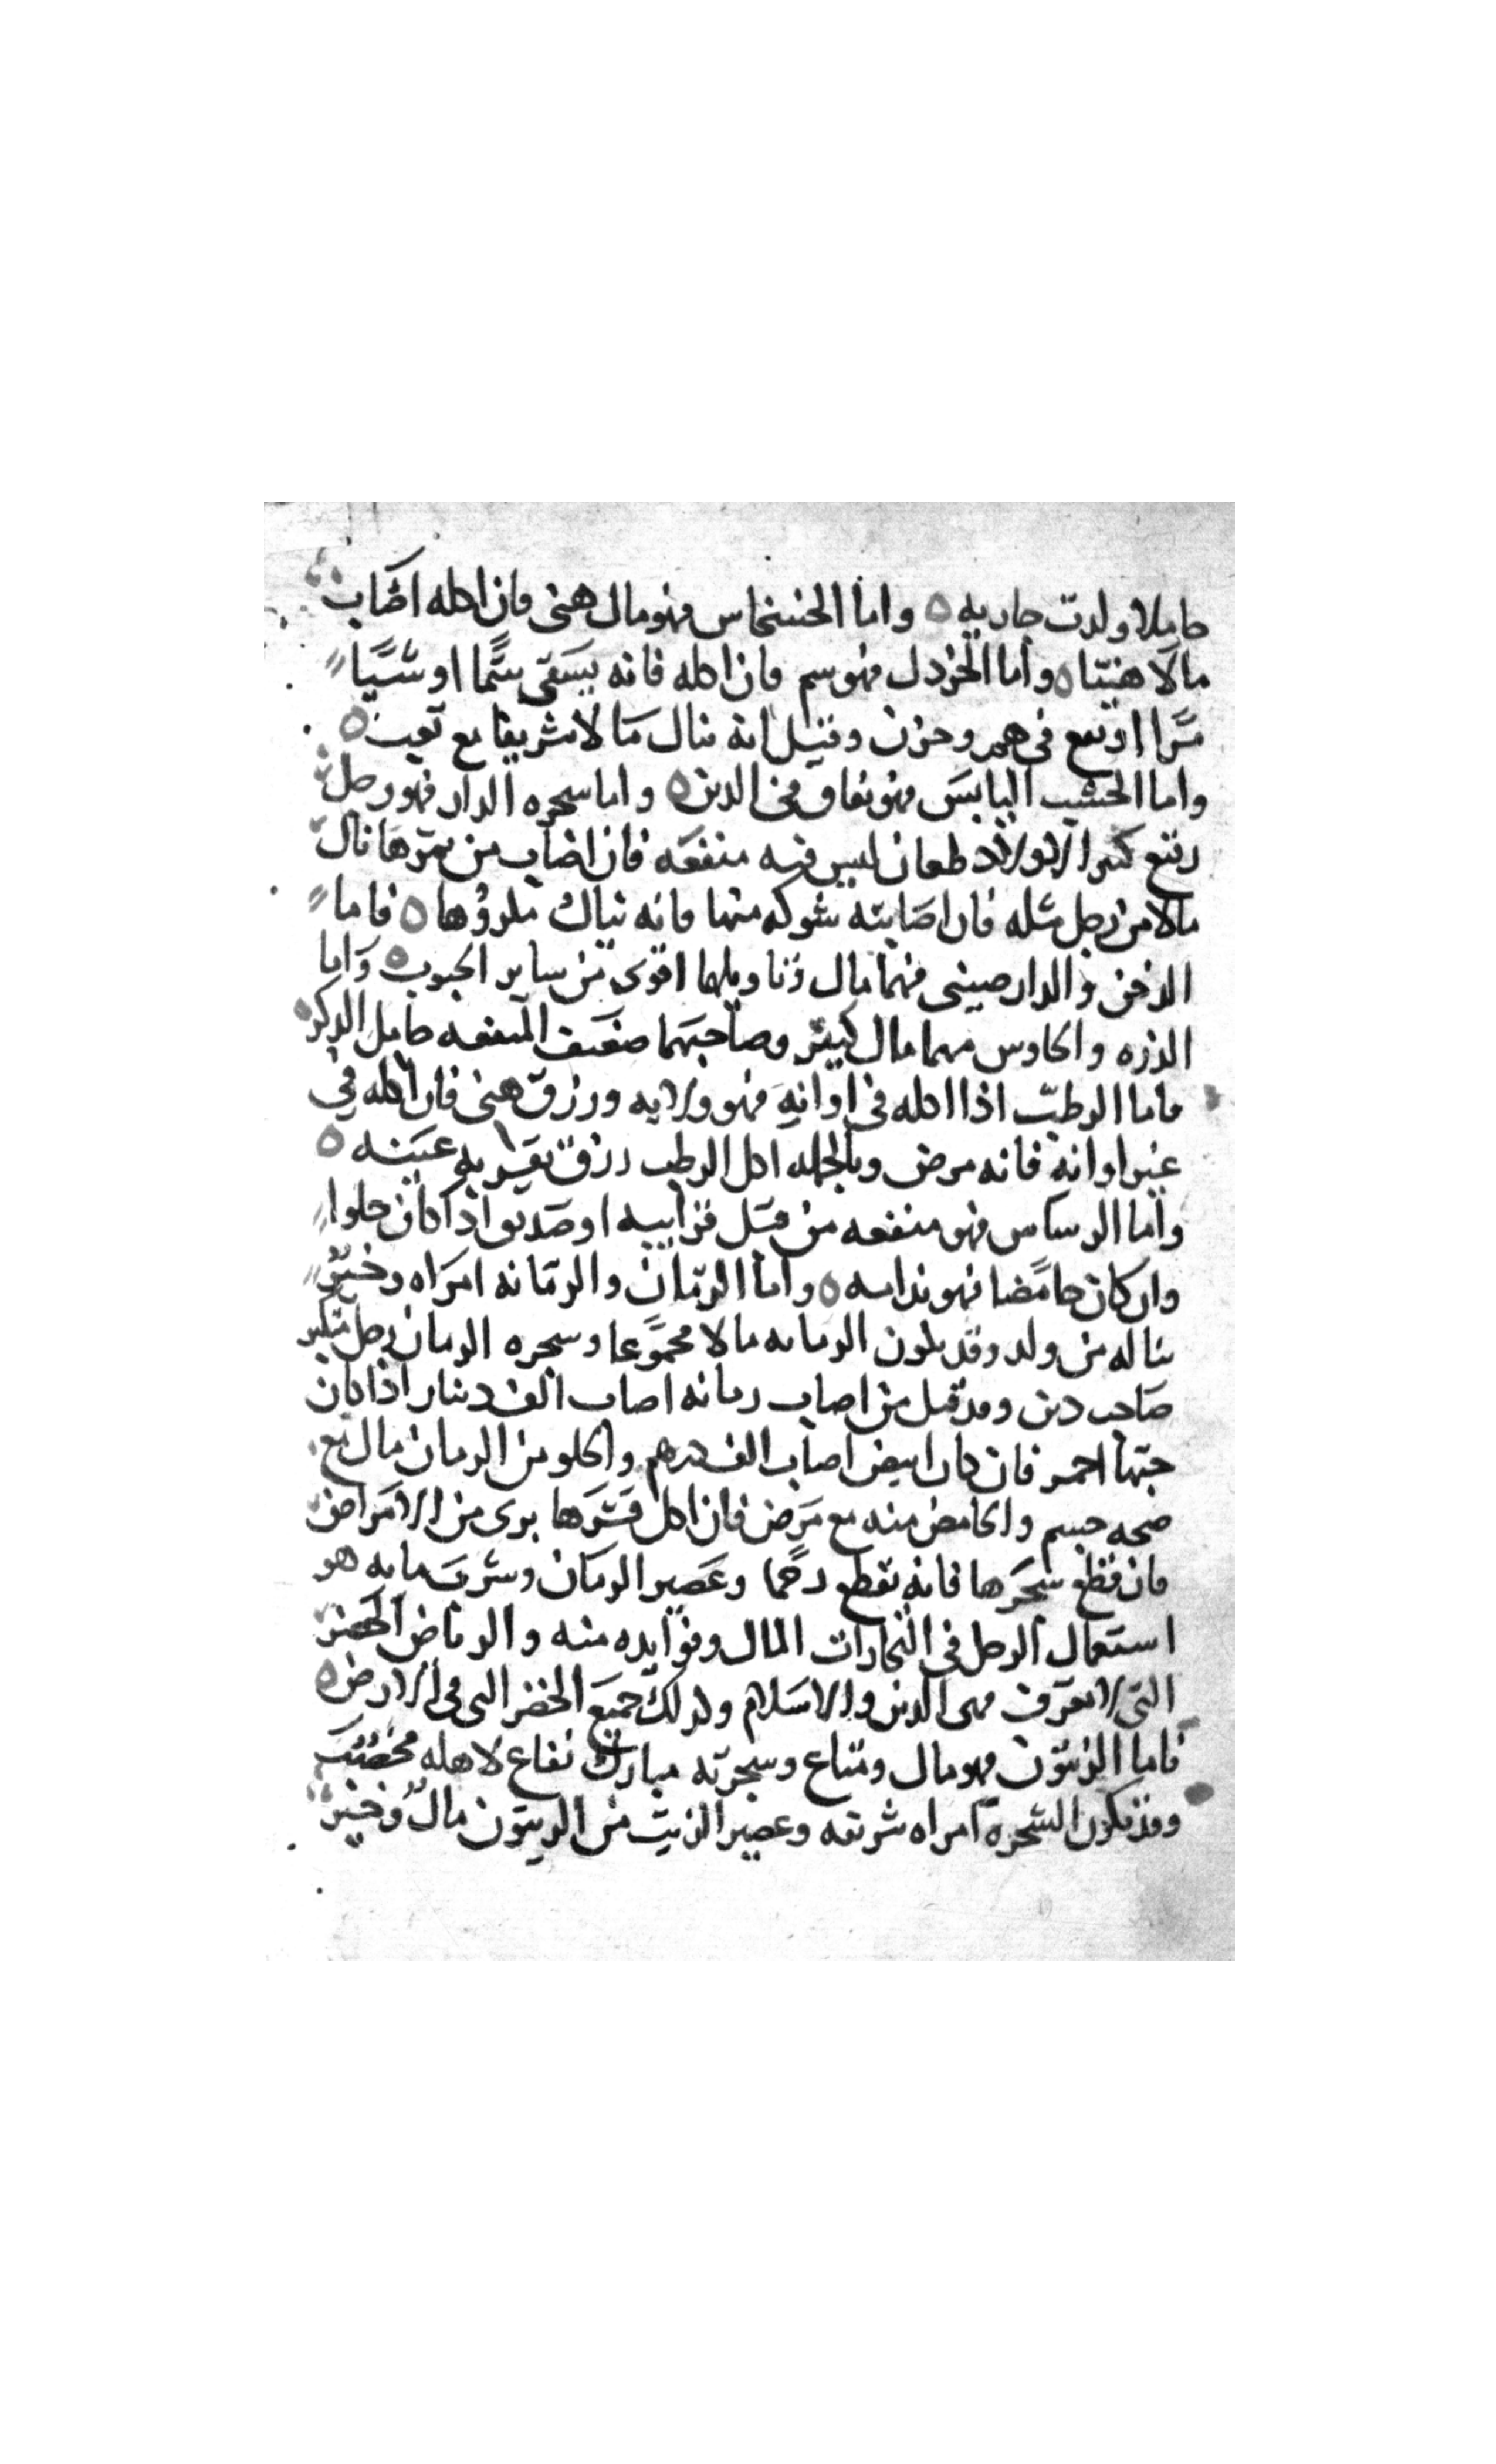 حاملا ولدت جاريه ٥ واما الخشخاس فهو مال هنى فان اكله اصاب
مالا هنيئا ٥ واما الخردل فهو سم فان اكله فانه يسقى سمًا او شيًا
مرًا او يقع فى هم وحزن وقيل انه ينال مالا شريفا مع تعب ٥
واما الخشب اليابس فهو نفاق فى الدين ٥ واما سجره الدار فهو رجل
رفيع كثير الاولاد طعان ليس فيه منفعه فان اصاب من ثمرها نال
مالا من رجل مثله فان اصابته شوكه منها فانه يناله مكروها ٥ فاما
الدخن والدارصينى فهما مال وتاويلها اقوى من ساير الحبوب ٥ واما
الذره والجاورس فهما مال كثير وصاحبهما ضعيف المنفعه خامل الذكر ٥
فاما الرطب اذا اكله فى اوانه فهو ولايه ورزق هنى فان اكله فى
غير اوانه فانه مرض وبالجمله اكل الرطب رزق تقر به عينه ٥
واما الريباس فهو منفعه من قبل قرابيه او صديق اذا كان حلوا
وان كان حامضا فهو ندامه ٥ واما الرمان والرمانه امراه وخير
يناله من ولد وقد يكون الرمانه مالا مجموعا وسجره الرمان رجل
صاحب دين وقد قيل من اصاب رمانه اصاب الف دينار اذا كان
حبها احمر فان كان ابيض اصاب الف درهم والحلو من الرمان مال مع
صحه جسم والحامض منه مع مرض فان اكل قشرها برى من الامراض
فان قطع شجرها فانه يقطع رحما وعصير الرمان وشرب مايه هو
استعمال الرجل فى التجارات المال وفوايده منه والرياض الخضر
التى لا تعرف فهى الدين والاسلام وكذلك جميع الخضر التى فى الارض ٥
فاما الزيتون فهو مال ومتاع وسجرته مبارك نفاع لاهله مخصب
وقد تكون الشجره امراه شريفه وعصير الزيت من الزيتون مال وخير